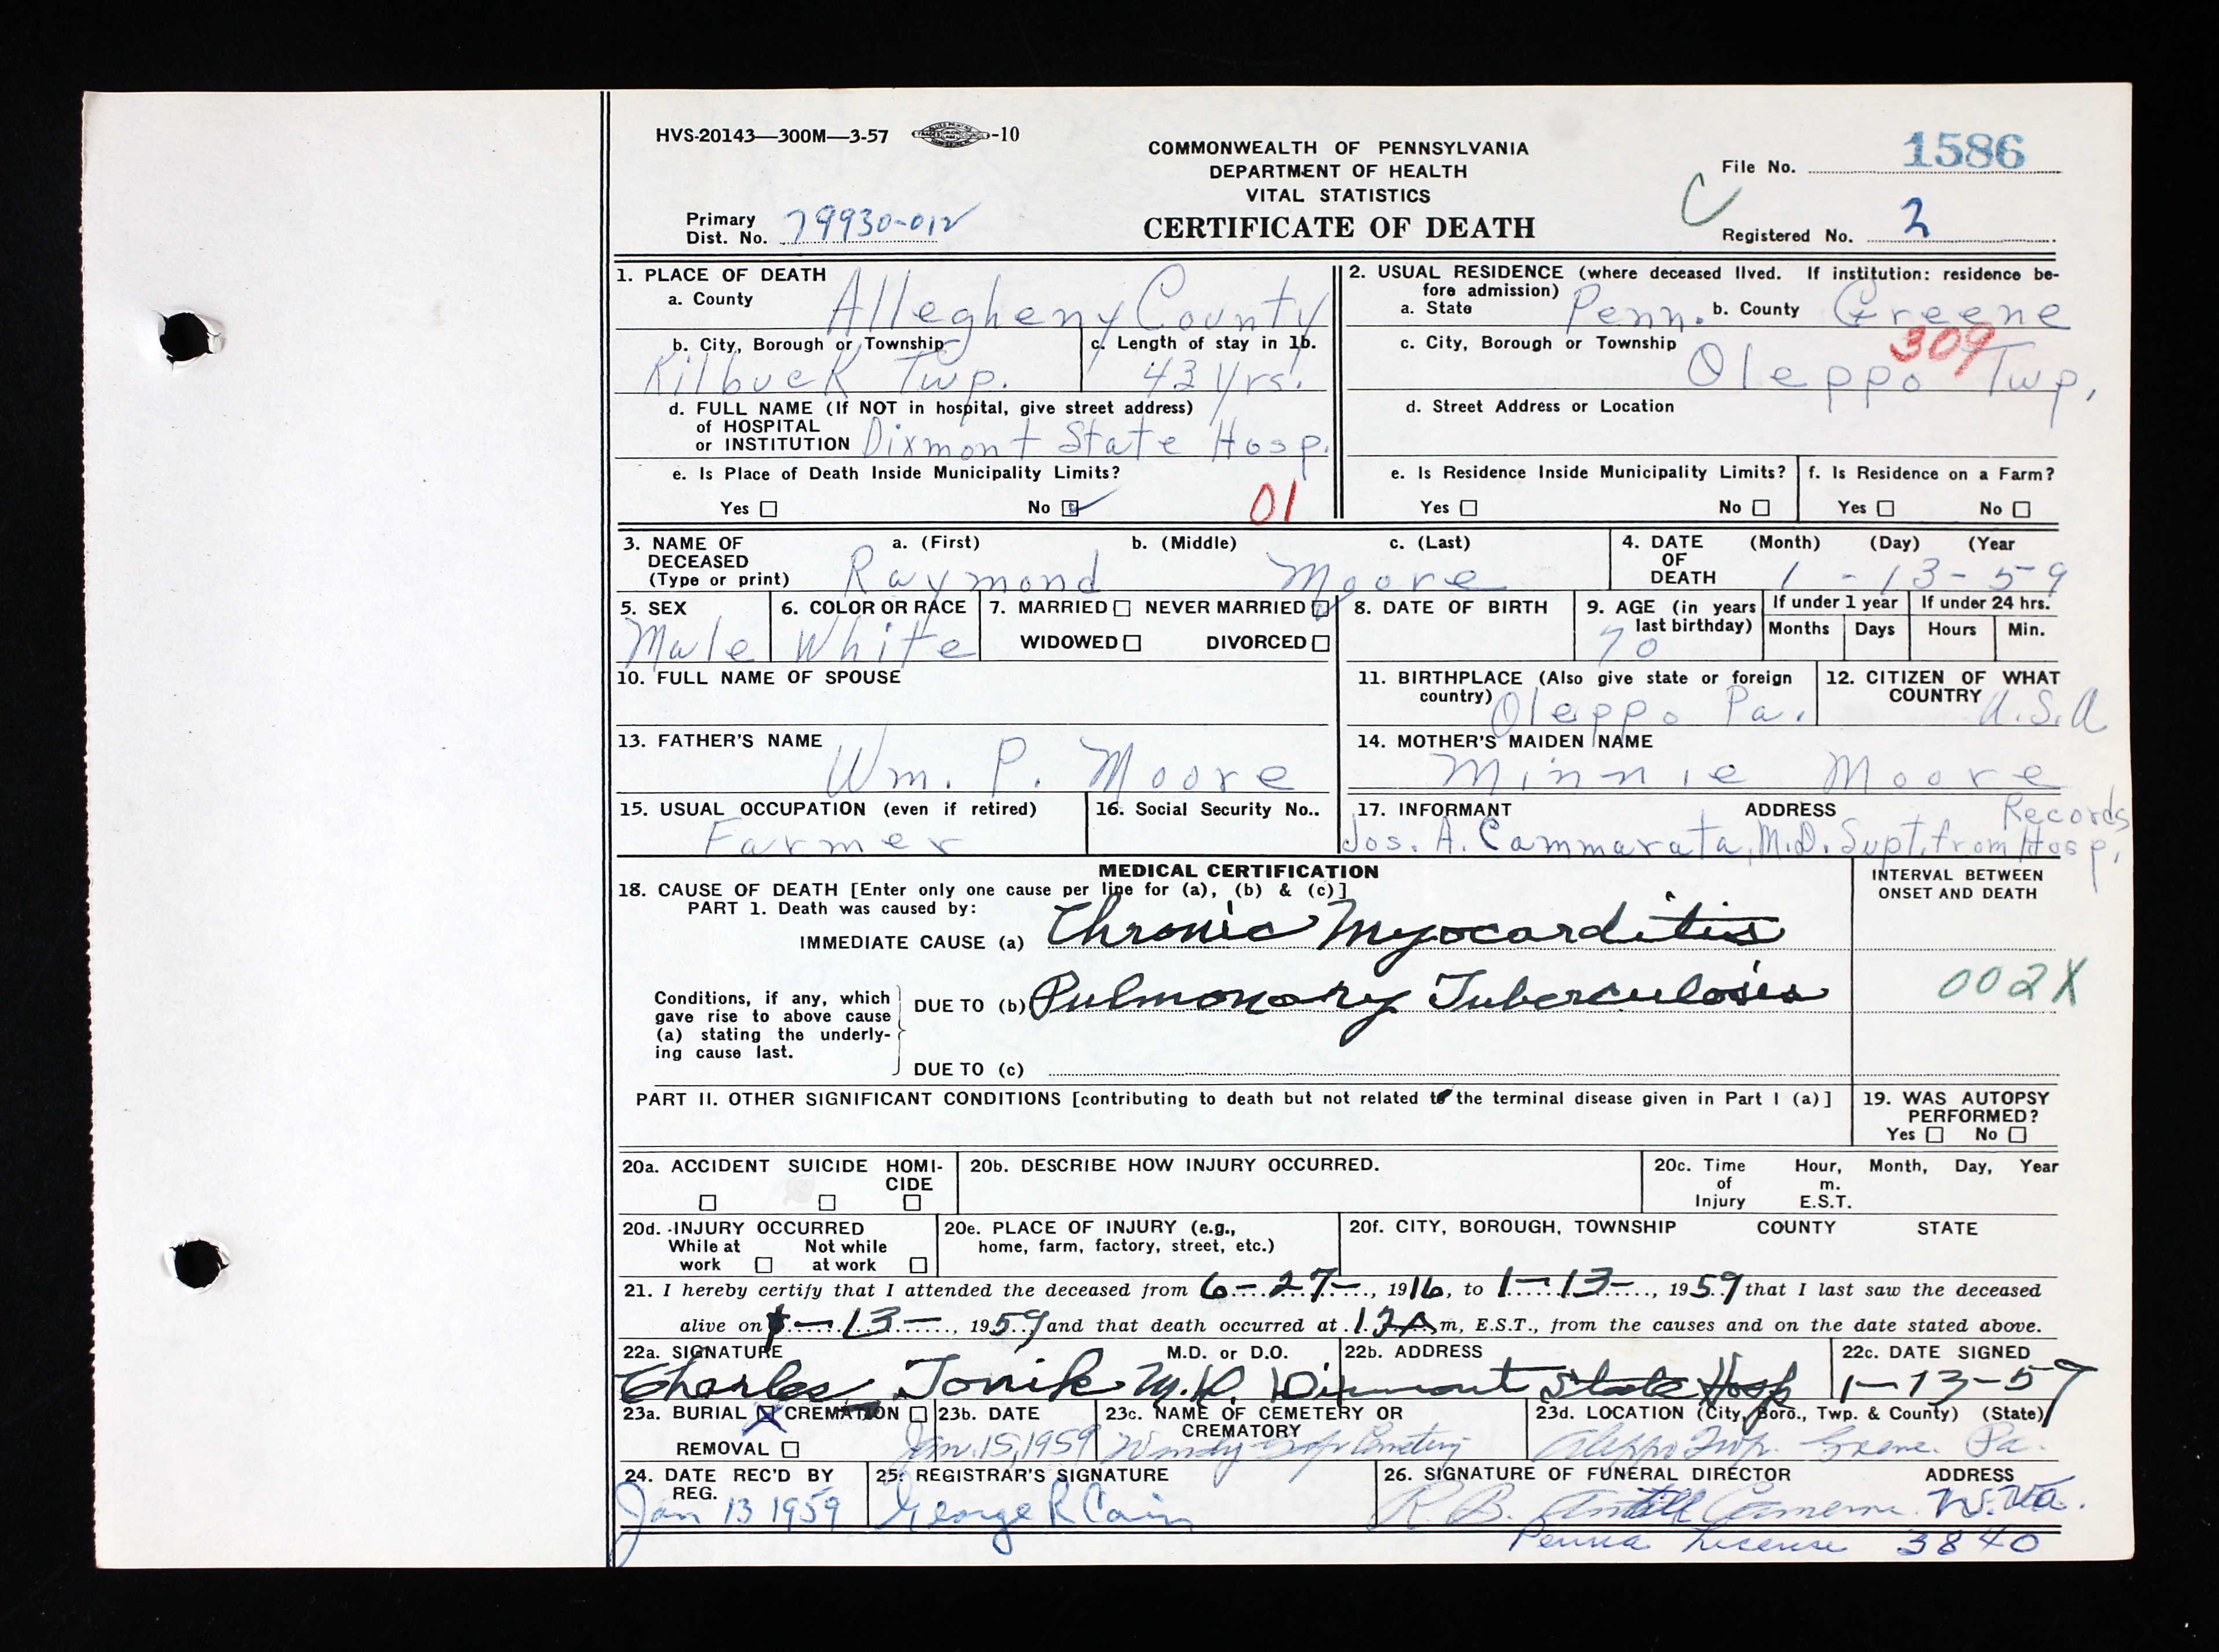 HVS-20143—300M—3-57 -10
COMMONWEALTH OF PENNSYLVANIA
DEPARTMENT OF HEALTH
VITAL STATISTICS
CERTIFICATE OF DEATH
File No. 1586
Primary
Dist. No. 79930-012
C
Registered No. 2
1. PLACE OF DEATH
a. County Allegheny County
b. City, Borough or Township Kilbuck Twp.
c. Length of stay in 1b. 42 Yrs.
d. FULL NAME (If NOT in hospital, give street address)
of HOSPITAL
or INSTITUTION Dixmont State Hosp.
e. Is Place of Death Inside Municipality Limits?
Yes ☐ No ☑ 01
2. USUAL RESIDENCE (where deceased lived. If institution: residence be-
fore admission)
a. State Penn. b. County Greene
c. City, Borough or Township Oleppo Twp. 309
d. Street Address or Location
e. Is Residence Inside Municipality Limits?
Yes ☐ No ☐
f. Is Residence on a Farm?
Yes ☐ No ☐
3. NAME OF DECEASED (Type or print)
a. (First) b. (Middle) c. (Last)
Raymond Moore
4. DATE OF DEATH (Month) (Day) (Year
1-13-59
5. SEX Male
6. COLOR OR RACE White
7. MARRIED ☐ NEVER MARRIED ☑
WIDOWED ☐ DIVORCED ☐
8. DATE OF BIRTH
9. AGE (in years last birthday) 70
If under 1 year Months Days
If under 24 hrs. Hours Min.
10. FULL NAME OF SPOUSE
11. BIRTHPLACE (Also give state or foreign country) Oleppo Pa.
12. CITIZEN OF WHAT COUNTRY U.S.A
13. FATHER'S NAME Wm. P. Moore
14. MOTHER'S MAIDEN NAME Minnie Moore
15. USUAL OCCUPATION (even if retired) Farmer
16. Social Security No..
17. INFORMANT ADDRESS
Jos. A. Cammarata, M.D. Supt. from Hosp. Records
MEDICAL CERTIFICATION
18. CAUSE OF DEATH [Enter only one cause per line for (a), (b) & (c)]
PART 1. Death was caused by:
IMMEDIATE CAUSE (a) Chronic Myocarditis
INTERVAL BETWEEN
ONSET AND DEATH
Conditions, if any, which
gave rise to above cause
(a) stating the underly-
ing cause last.
DUE TO (b) Pulmonary Tuberculosis
002X
DUE TO (c)
PART II. OTHER SIGNIFICANT CONDITIONS [contributing to death but not related to the terminal disease given in Part I (a)]
19. WAS AUTOPSY
PERFORMED?
Yes ☐ No ☐
20a. ACCIDENT SUICIDE HOMI-
CIDE
☐ ☐ ☐
20b. DESCRIBE HOW INJURY OCCURRED.
20c. Time of Injury Hour, Month, Day, Year
m.
E.S.T.
20d. INJURY OCCURRED
While at work ☐ Not while at work ☐
20e. PLACE OF INJURY (e.g.,
home, farm, factory, street, etc.)
20f. CITY, BOROUGH, TOWNSHIP COUNTY STATE
21. I hereby certify that I attended the deceased from 6-27-, 1916, to 1-13-, 1959 that I last saw the deceased
alive on 1-13-, 1959 and that death occurred at m, E.S.T., from the causes and on the date stated above.
22a. SIGNATURE M.D. or D.O.
Charles Tonik M.D.
22b. ADDRESS Dixmont State Hosp
22c. DATE SIGNED 1-13-59
23a. BURIAL ☒ CREMATION ☐
REMOVAL ☐
23b. DATE Jan. 15, 1959
23c. NAME OF CEMETERY OR
CREMATORY Windy Gap Cemetery
23d. LOCATION (City, Boro., Twp. & County) (State)
Aleppo Twp. Greene. Pa.
24. DATE REC'D BY
REG. Jan 13 1959
25. REGISTRAR'S SIGNATURE
George R Cain
26. SIGNATURE OF FUNERAL DIRECTOR ADDRESS
R. B. Antill Cameron W. Va.
Penna License 3840